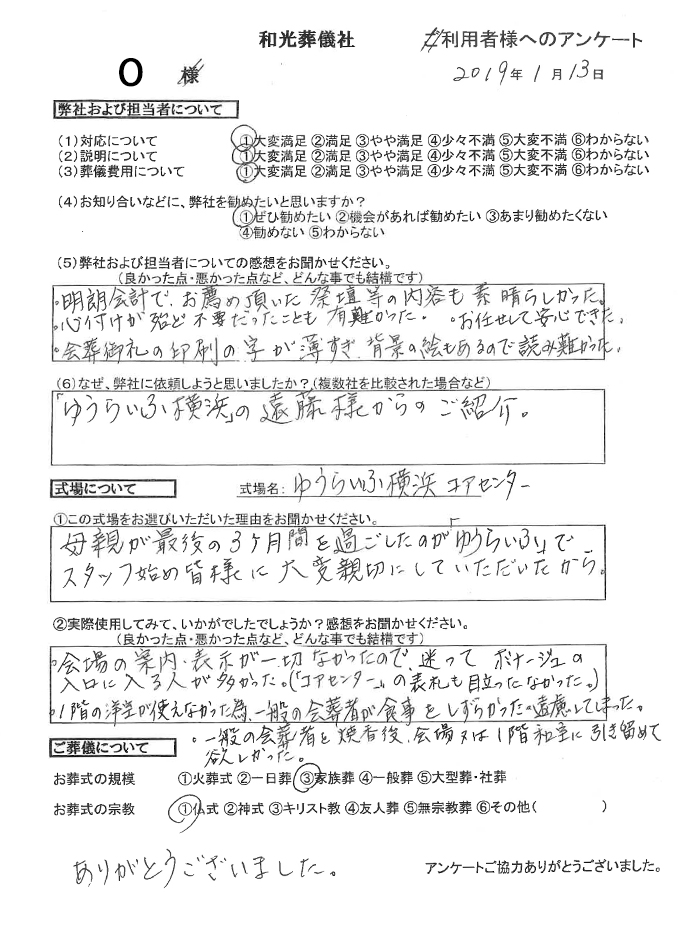 和光葬儀社 ご利用者様へのアンケート
O 様 2019年1月13日
弊社および担当者について
(1)対応について ①大変満足 ②満足 ③やや満足 ④少々不満 ⑤大変不満 ⑥わからない
(2)説明について ①大変満足 ②満足 ③やや満足 ④少々不満 ⑤大変不満 ⑥わからない
(3)葬儀費用について ①大変満足 ②満足 ③やや満足 ④少々不満 ⑤大変不満 ⑥わからない
(4)お知り合いなどに、弊社を勧めたいと思いますか?
①ぜひ勧めたい ②機会があれば勧めたい ③あまり勧めたくない
④勧めない ⑤わからない
(5)弊社および担当者についての感想をお聞かせください。
(良かった点・悪かった点など、どんな事でも結構です)
・明朗会計で、お薦め頂いた祭壇等の内容も素晴らしかった。
・心付けが殆ど不要だったことも有難かった。 ・お任せして安心できた。
・会葬御礼の印刷の字が薄すぎ、背景の絵もあるので読み難かった。
(6)なぜ、弊社に依頼しようと思いましたか?(複数社を比較された場合など)
「ゆうらいふ横浜」の遠藤様からのご紹介。
式場について 式場名: ゆうらいふ横浜 コアセンター
①この式場をお選びいただいた理由をお聞かせください。
母親が最後の3ヶ月間を過ごしたのが「ゆうらいふ」で
スタッフ始め皆様に大変親切にしていただいたから。
②実際使用してみて、いかがでしたでしょうか?感想をお聞かせください。
(良かった点・悪かった点など、どんな事でも結構です)
・会場の案内・表示が一切なかったので、迷ってボナージュの
入口に入る人が多かった。(「コアセンター」の表札も目立たなかった。)
・1階の洋室が使えなかった為、一般の会葬者が食事をしずらかった。遠慮してしまった。
・一般の会葬者を焼香後、会場又は1階和室に引き留めて
欲しかった。
ご葬儀について
お葬式の規模 ①火葬式 ②一日葬 ③家族葬 ④一般葬 ⑤大型葬・社葬
お葬式の宗教 ①仏式 ②神式 ③キリスト教 ④友人葬 ⑤無宗教葬 ⑥その他( )
ありがとうございました。 アンケートご協力ありがとうございました。